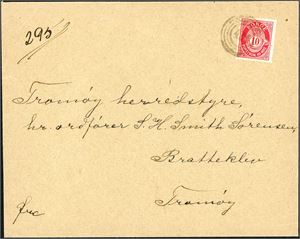 295
10
Tromøy herredstyre,
hr. ordfører S. H. Smith Sørensen,
Bratteklev
Tromøy
frc